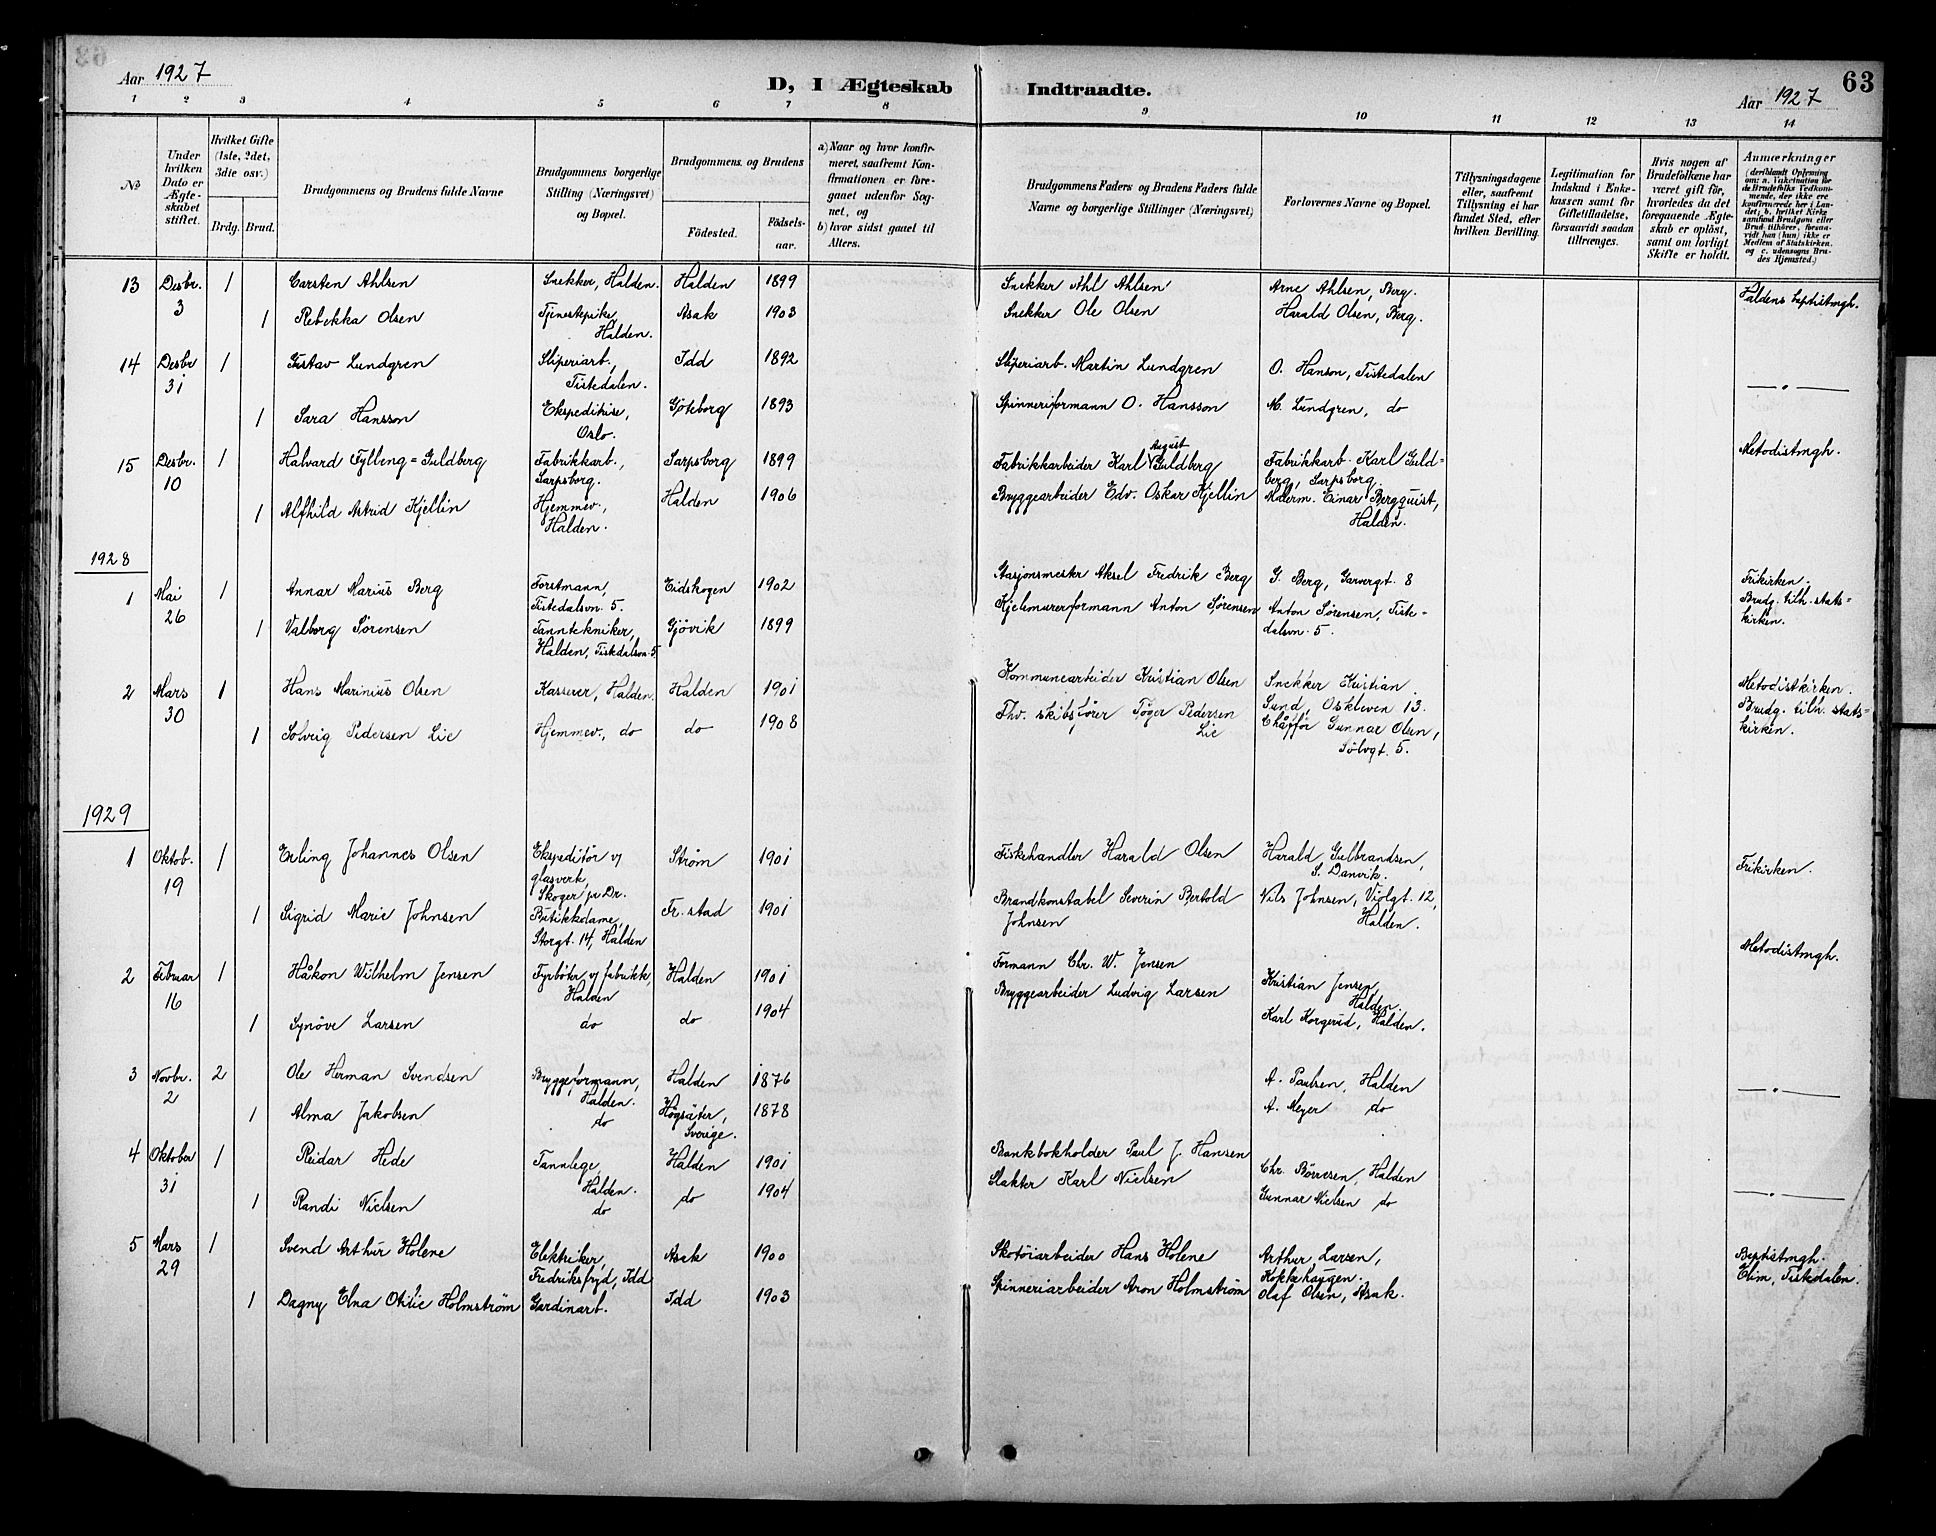 63
Aar 1927
D, I Ægteskab Indtraadte.
Aar 1927
1 2 3 4 5 6 7 8 9 10 11 12 13 14
No
Under hvilken Dato er Ægteskabet stiftet.
Hvilket Gifte (1ste, 2det, 3die osv.)
Brdg. Brud.
Brudgommens og Brudens fulde Navne
Brudgommens borgerlige Stilling (Næringsvei) og Bopæl.
Brudgommens og Brudens
Födested. Födsels-aar.
a) Naar og hvor konfirmeret, saafremt Konfirmationen er foregaaet udenfor Sognet, og
b) hvor sidst gaaet til Alters.
Brudgommens Faders og Brudens Faders fulde Navne og borgerlige Stillinger (Næringsvei)
Forlovernes Navne og Bopæl.
Tillysningsdagene eller, saafremt Tillysning ei har fundet Sted, efter hvilken Bevilling.
Legitimation for Indskud i Enkekassen samt for Giftetilladelse, forsaavidt saadan tiltrænges.
Hvis nogen af Brudefolkene har været gift för, hvorledes da det foregaaende Ægteskab er oplöst, samt om lovligt Skifte er holdt.
Anmærkninger (deriblandt Oplysning om: a. Vakcination for de Brudefolks Vedkommende, der ikke ere konfirmerede her i Landet; b. hvilket Kirkesamfund Brudgom eller Brud tilhörer, forsaavidt han (hun) ikke er Medlem af Statskirken, og c. udensogns Brudes Hjemsted.)
13 Desbr. 3 1 Carsten Ahlsen Snekker, Halden. Halden 1899 Snekker Ahl Ahlsen Arne Ahlsen, Berg. Haldens baptistmgh.
1 Rebekka Olsen Tjenestepike, Halden. Asak 1903 Snekker Ole Olsen Harald Olsen, Berg.
14 Desbr 31 1 Gustav Lundgren Sliperiarb., Tistedalen. Idd 1892 Sliperiarb. Martin Lundgren O. Hanson, Tistedalen — " —
1 Sara Hansson Ekspeditrise, Oslo. Gjöteborg 1893 Spinneriformann O. Hansson M. Lundgren, do
15 Desbr. 10 1 Halvard Fylling=Guldberg Fabrikkarb., Sarpsborg. Sarpsborg 1899 Fabrikkarbeider Karl August Guldberg Fabrikkarb. Karl Guld=berg, Sarpsborg. Metodistmgh.
1 Alfhild Astrid Kjellin Hjemmev., Halden. Halden 1906 Bryggearbeider Edv. Oskar Kjellin Malerm. Einar Bergquist, Halden.
1928
1 Mai 26 1 Annar Marius Berg Forstmann, Tistedalsvn. 5. Eidskogen 1902 Stasjonsmester Aksel Fredrik Berg G. Berg, Garvergt. 8 Frikirken. Brudg. tilh. stats=kirken.
1 Valborg Sørensen Tanntekniker, Halden, Tistedalsvn. 5 Gjövik 1899 Kjelemurerformann Anton Sørensen Anton Sørensen, Tiste=dalsvn. 5.
2 Mars 30 1 Hans Marinius Olsen Kasserer, Halden. Halden 1901 Kommunearbeider Kristian Olsen Snekker Kristian Lund, Oskleven 13. Metodistkirken. Brudg. tilh. stats=kirken.
1 Solveig Pedersen Lie Hjemmev., do do 1908 Fhv. skibsfører Tøger Pedersen Lie Chåffør Gunnar Olsen, Sølvgt. 5.
1929
1 Oktob. 19 1 Erling Johannes Olsen Ekspeditör v/ glasverk, Skoger pr Dr. Strøm 1901 Fiskehandler Harald Olsen Harald Gulbrandsen, S. Danvik. Frikirken.
1 Sigrid Marie Johnsen Butikkdame, Storgt. 14, Halden Fr.stad 1901 Brandkonstabel Severin Bertold Johnsen Nils Johnsen, Violgt. 12, Halden.
2 Februar 16 1 Håkon Wilhelm Jensen Fyrböter v/ fabrikk, Halden Halden 1901 Formann Chr. W. Jensen Kristian Jensen, Halden. Metodistmgh.
1 Synöve Larsen do do 1904 Bryggearbeider Ludvig Larsen Karl Korgerud, Halden.
3 Novbr. 2 2 Ole Herman Svendsen Bryggeformann, Halden. Halden 1876 A. Paulsen, Halden — " —
1 Alma Jakobsen do Högsäter, Sverige. 1878 A. Meyer do
4 Oktober 31 1 Reidar Hede Tannlege, Halden. Halden 1901 Bankbokholder Paul J. Hansen Chr. Börresen, Halden
1 Randi Nielsen do do 1904 Slakter Karl Nielsen Gunnar Nielsen do — " —
5 Mars 29 1 Svend Arthur Holene Elektriker, Fredriksfryd, Idd Asak 1900 Skotøiarbeider Hans Holene Arthur Larsen, Kokkehaugen. Baptistmgh. Elim, Tistedalen.
1 Dagny Elna Otilie Holmström Gardinarb. Idd 1903 Spinneriarbeider Aron Holmström Olaf Olsen, Asak.